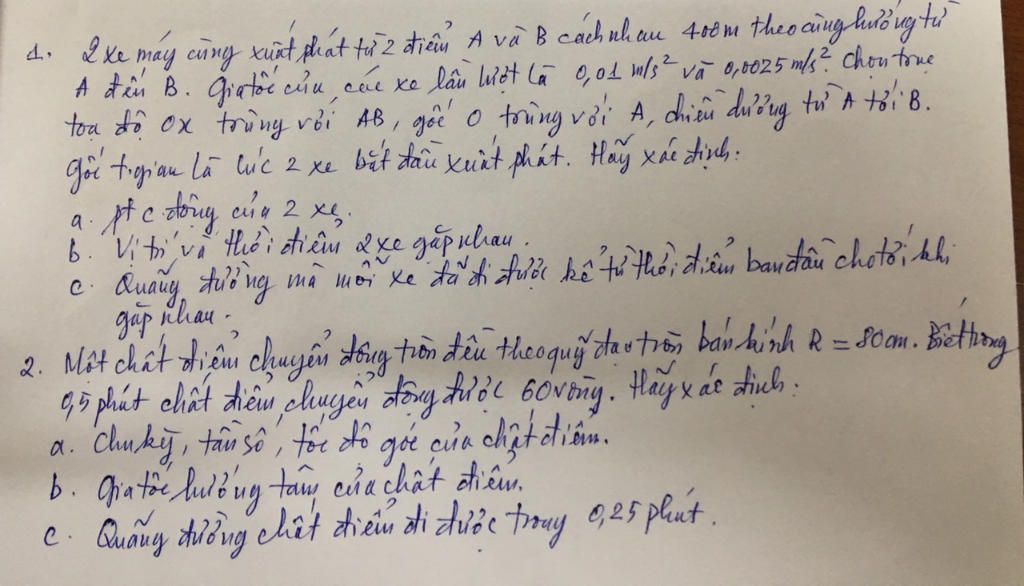 1. 2 xe máy cùng xuất phát từ 2 điểm A và B cách nhau 400m theo cùng hướng từ
A đến B. Gia tốc của các xe lần lượt là 0,01 m/s² và 0,0025 m/s². Chọn trục
tọa độ Ox trùng với AB, gốc O trùng với A, chiều dương từ A tới B.
Gốc t.gian là lúc 2 xe bắt đầu xuất phát. Hãy xác định:
a. pt c.động của 2 xe.
b. Vị trí và thời điểm 2 xe gặp nhau.
c. Quãng đường mà mỗi xe đã đi được kể từ thời điểm ban đầu cho tới khi
gặp nhau.
2. Một chất điểm chuyển động tròn đều theo quỹ đạo tròn bán kính R = 80cm. Biết trong
0,5 phút chất điểm chuyển động được 60 vòng. Hãy xác định:
a. Chu kỳ, tần số, tốc độ góc của chất điểm.
b. Gia tốc hướng tâm của chất điểm.
c. Quãng đường chất điểm đi được trong 0,25 phút.